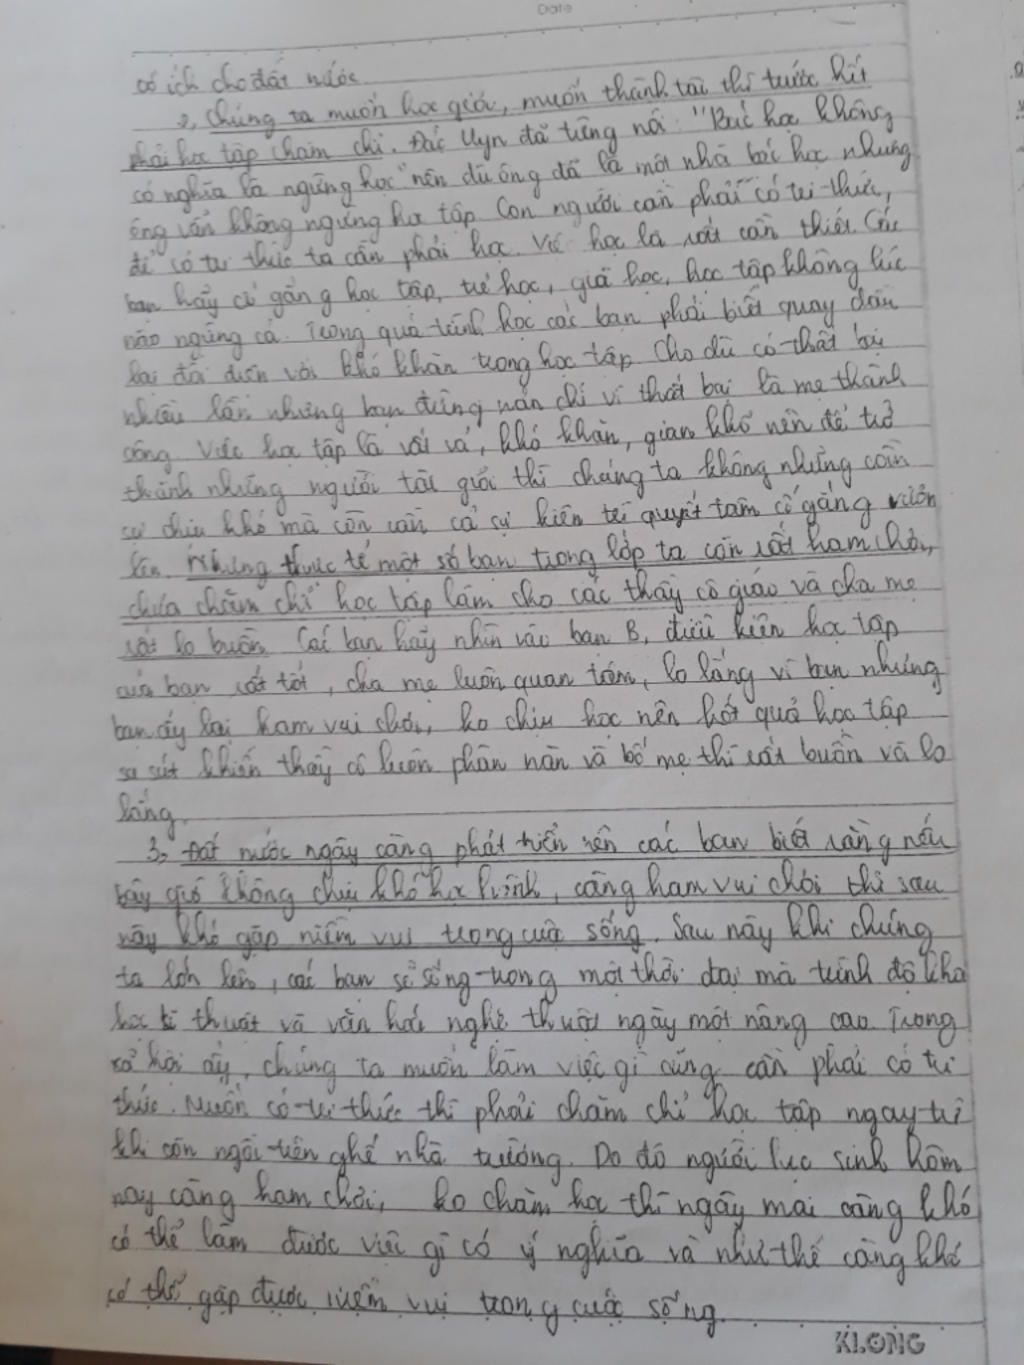 Date
có ích cho đất nước
2, Chúng ta muốn học giỏi, muốn thành tài thì trước hết
phải học tập chăm chỉ. Đác Uyn đã từng nói: "Bác học không
có nghĩa là ngừng học" nên dù ông đã là một nhà bác học nhưng
ông vẫn không ngừng học tập. Con người cần phải có tri thức,
để có tri thức ta cần phải học. Việc học là rất cần thiết. Các
bạn hãy cố gắng học tập, trẻ học, già học, học tập không lúc
nào ngừng cả. Trong quá trình học các bạn phải biết quay đầu
lại đối diện với khó khăn trong học tập. Cho dù có thất bại
nhiều lần nhưng bạn đừng nản chí vì thất bại là mẹ thành
công. Việc học tập là vất vả, khó khăn, gian khổ nên để trở
thành những người tài giỏi thì chúng ta không những cần
sự chịu khó mà còn cần cả sự kiên trì quyết tâm cố gắng vươn
lên. Nhưng thực tế một số bạn trong lớp ta còn rất ham chơi,
chưa chăm chỉ học tập làm cho các thầy cô giáo và cha mẹ
rất lo buồn. Các bạn hãy nhìn vào bạn B, điều kiện học tập
của bạn rất tốt, cha mẹ luôn quan tâm, lo lắng vì bạn nhưng
bạn ấy lại ham vui chơi, ko chịu học nên kết quả học tập
sa sút khiến thầy cô luôn phàn nàn và bố mẹ thì rất buồn và lo
lắng.
3, Đất nước ngày càng phát triển nên các bạn biết rằng nếu
bây giờ không chịu khó học hành, càng ham vui chơi thì sau
này khó gặp niềm vui trong cuộc sống. Sau này khi chúng
ta lớn lên, các bạn sẽ sống trong một thời đại mà trình độ khoa
học kĩ thuật và văn hoá nghệ thuật ngày một nâng cao. Trong
xã hội ấy, chúng ta muốn làm việc gì cũng cần phải có tri
thức. Muốn có tri thức thì phải chăm chỉ học tập ngay từ
khi còn ngồi trên ghế nhà trường. Do đó người học sinh hôm
nay càng ham chơi, ko chăm học thì ngày mai càng khó
có thể làm được việc gì có ý nghĩa và như thế càng khó
có thể gặp được niềm vui trong cuộc sống.
KLONG